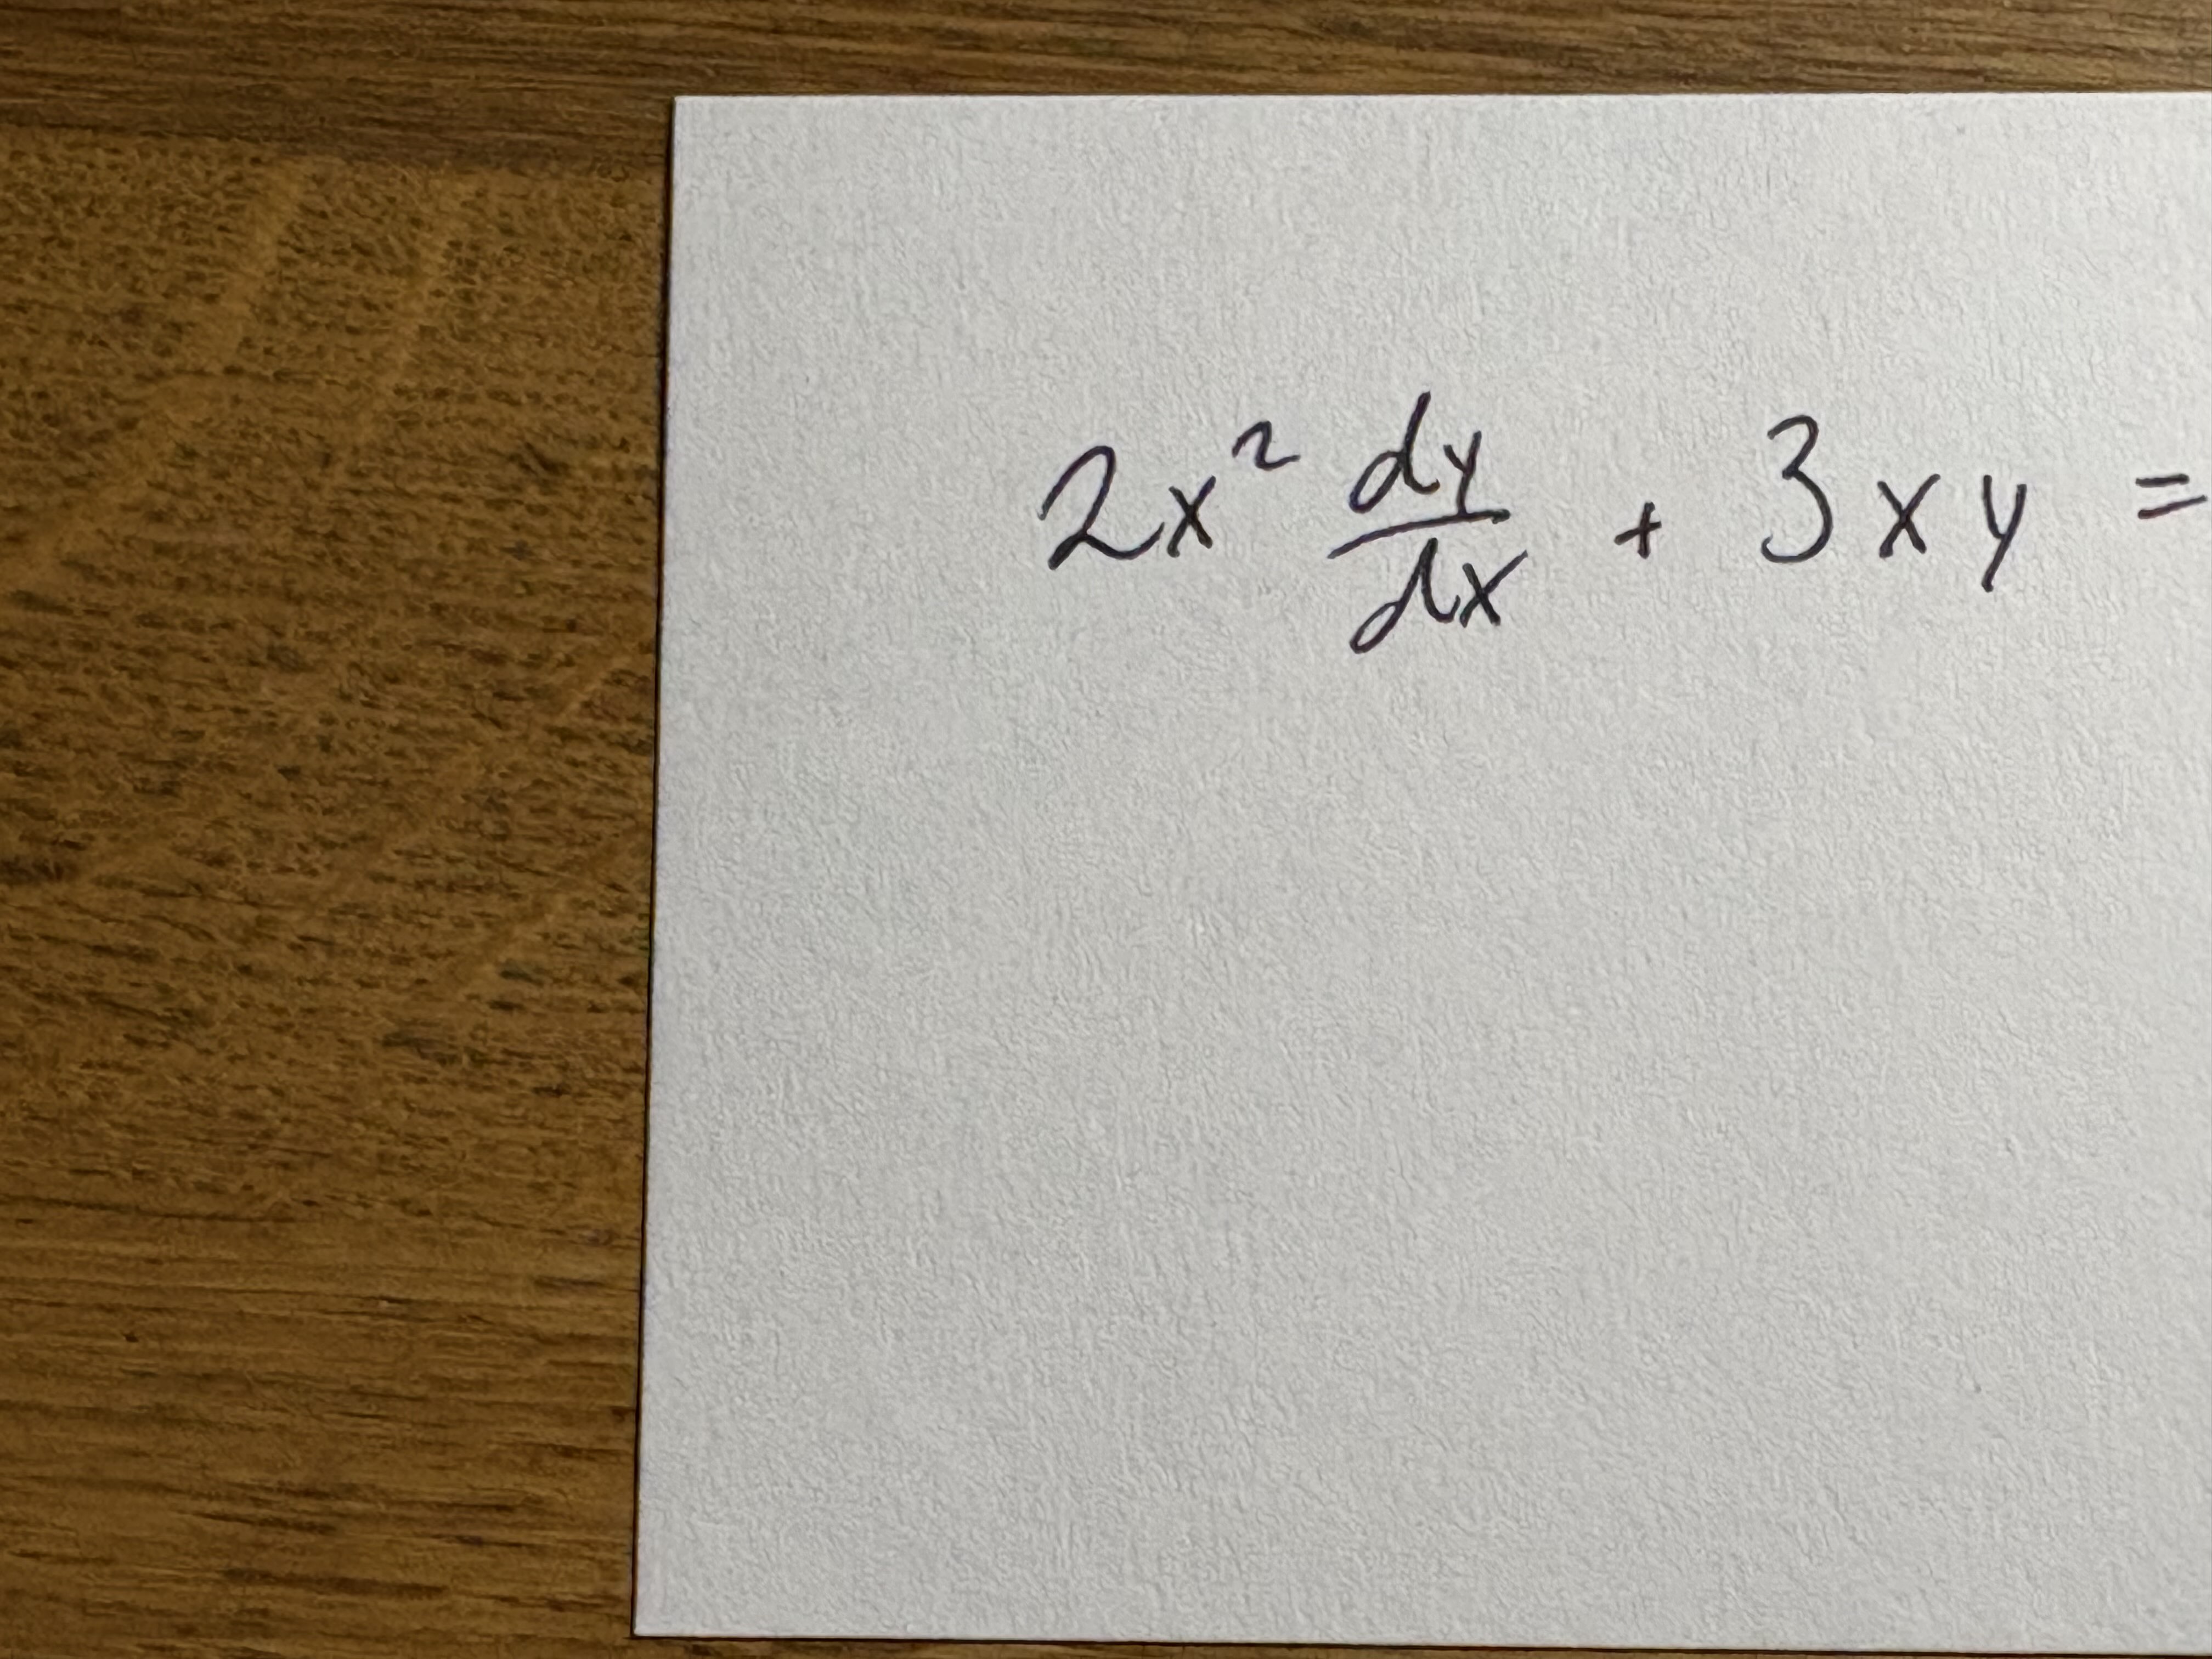 2x² dy/dx + 3xy =